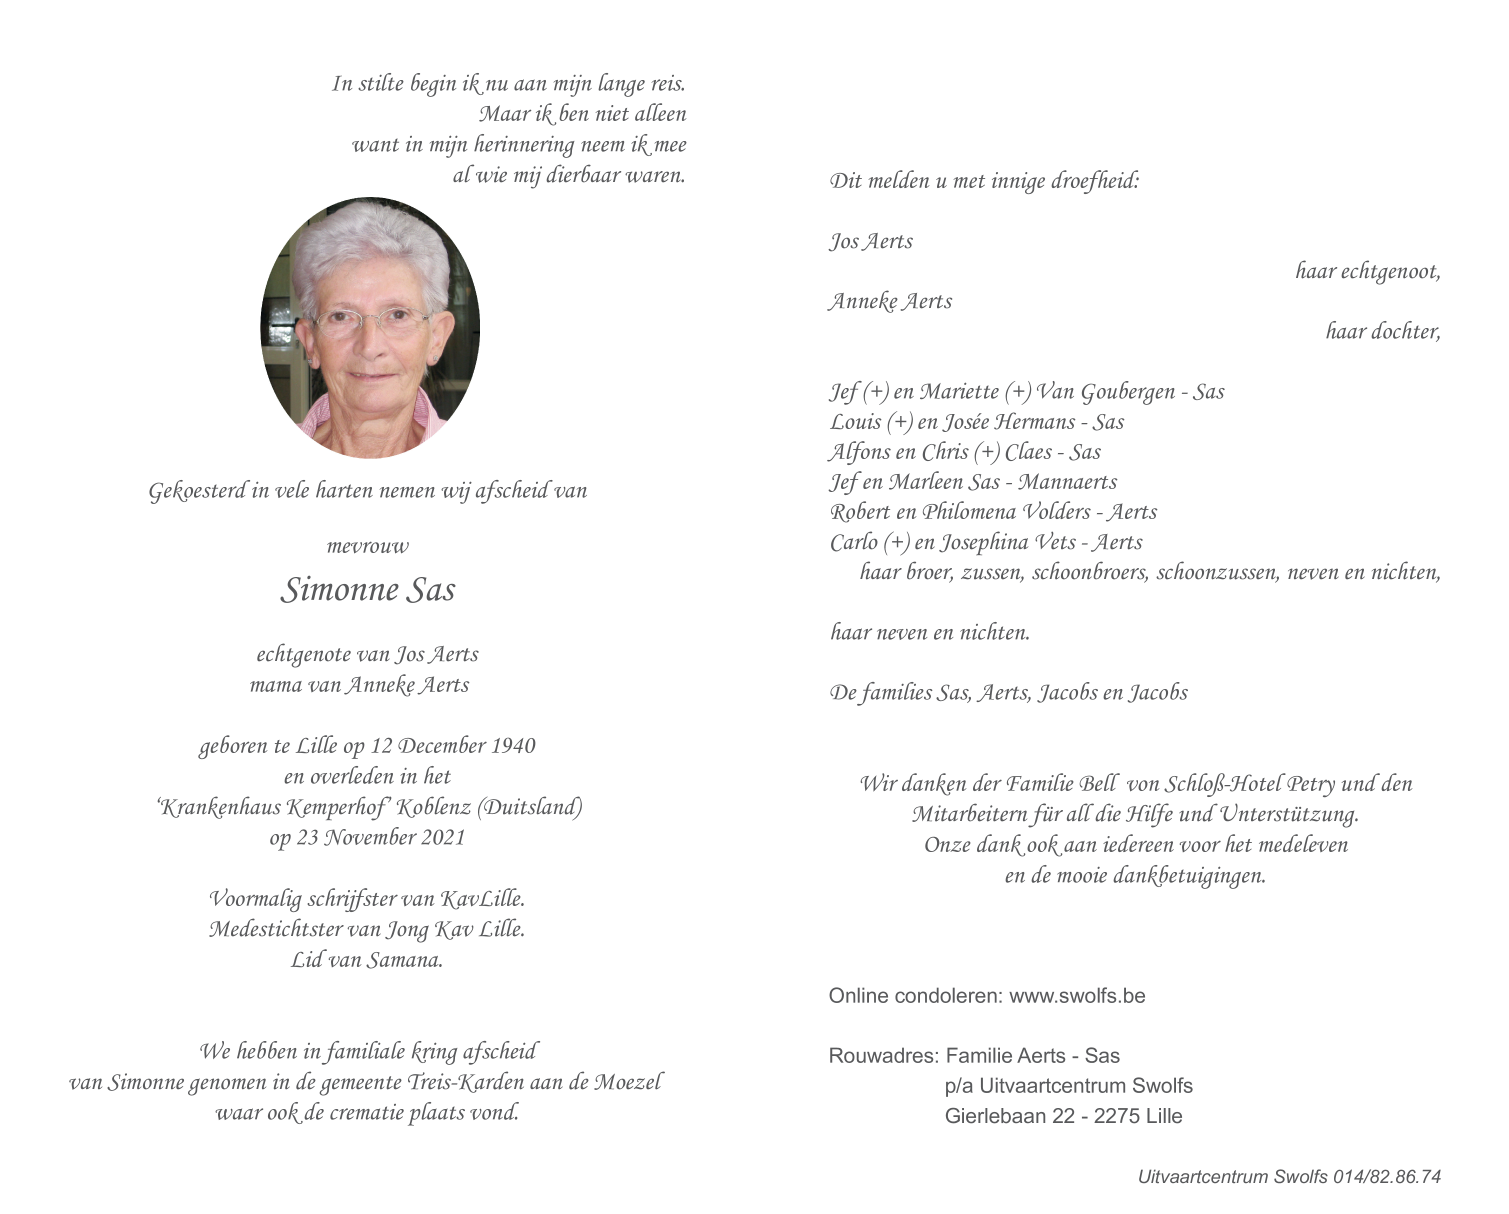 In stilte begin ik nu aan mijn lange reis.
Maar ik ben niet alleen
want in mijn herinnering neem ik mee
al wie mij dierbaar waren.
Gekoesterd in vele harten nemen wij afscheid van
mevrouw
Simonne Sas
echtgenote van Jos Aerts
mama van Anneke Aerts
geboren te Lille op 12 December 1940
en overleden in het
‘Krankenhaus Kemperhof’ Koblenz (Duitsland)
op 23 November 2021
Voormalig schrijfster van KavLille.
Medestichtster van Jong Kav Lille.
Lid van Samana.
We hebben in familiale kring afscheid
van Simonne genomen in de gemeente Treis-Karden aan de Moezel
waar ook de crematie plaats vond.
Dit melden u met innige droefheid:
Jos Aerts
haar echtgenoot,
Anneke Aerts
haar dochter,
Jef (+) en Mariette (+) Van Goubergen - Sas
Louis (+) en Josée Hermans - Sas
Alfons en Chris (+) Claes - Sas
Jef en Marleen Sas - Mannaerts
Robert en Philomena Volders - Aerts
Carlo (+) en Josephina Vets - Aerts
haar broer, zussen, schoonbroers, schoonzussen, neven en nichten,
haar neven en nichten.
De families Sas, Aerts, Jacobs en Jacobs
Wir danken der Familie Bell  von Schloß-Hotel Petry und den
Mitarbeitern für all die Hilfe und Unterstützung.
Onze dank ook aan iedereen voor het medeleven
en de mooie dankbetuigingen.
Online condoleren: www.swolfs.be
Rouwadres: Familie Aerts - Sas
p/a Uitvaartcentrum Swolfs
Gierlebaan 22 - 2275 Lille
Uitvaartcentrum Swolfs 014/82.86.74